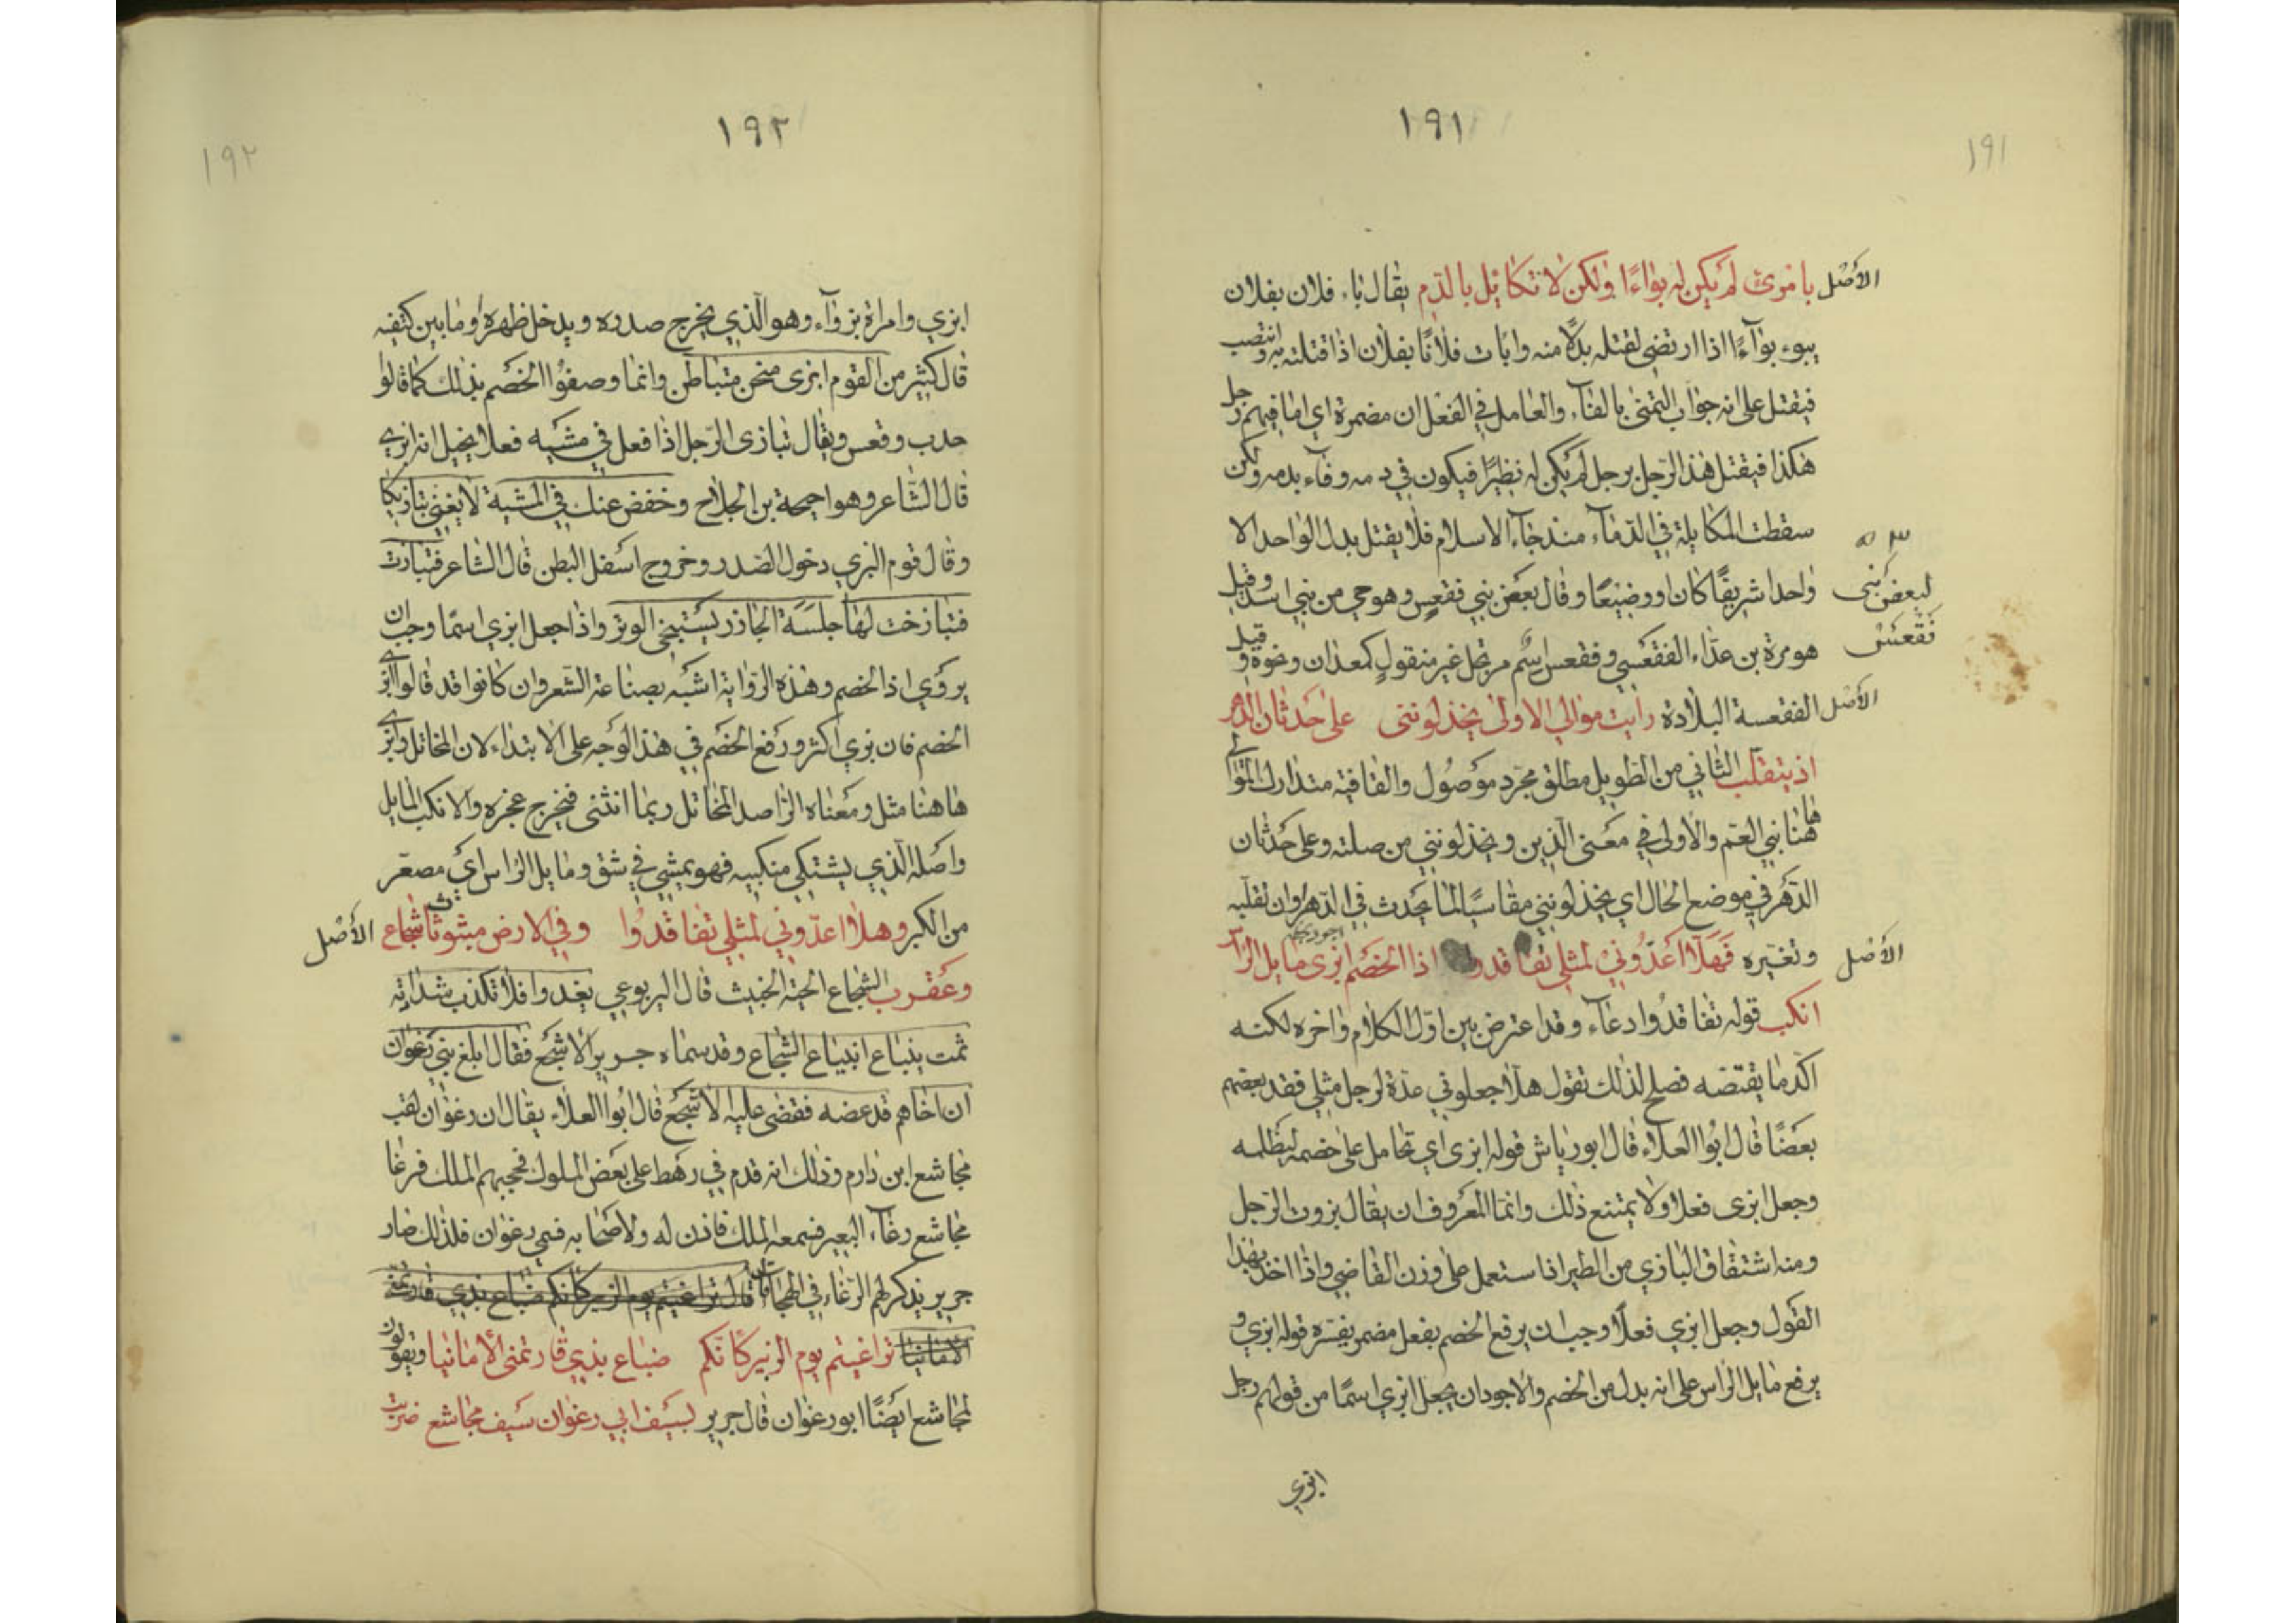 ١٩١
١٩١
الأصل بامرئ لم يكن له بواءًا ولكن لا تكايل بالدم يقال باء فلان بفلان
يبوء بوآءًا اذا ارتضى لقتله بدلًا منه وابأت فلانًا بفلان اذا قتلته به وانتصب
فيقتل على انه جواب التمنى بالفآء والعامل في الفعل ان مضمرة اي اما فيهم رجل
هكذا فيقتل هذا الرجل برجل لم يكن له نظيرًا فيكون في دمه وفآء بدمه ولكن
سقطت المكايلة في الدمآء منذ جآء الاسلام فلا يقتل بدل الواحد الا
واحدا شريفًا كان او وضيعًا وقال بعض بني فقعس وهو حي من بني اسد وقيل
لبعض بنى
هو مرة بن عدّاء الفقعسي وفقعس اسم مرتجل غير منقول كمعدان ونحوه وقيل
فقعس
الأصل الفقعسة البلادة رايت موالي الاولى يخذلوننى على حدثان الدهر
اذ يتقلب الثاني من الطويل مطلق مجرد موصول والقافية متدارك الموالى
هاهنا بني العم والاولى في معنى الذين ويخذلونني من صلته وعلى حدثان
الدّهر في موضع الحال اي يخذلونني مقاسيًا لما يحدث في الدهر وان تقلبه
الأصل وتغيره فهلّا اعدّوني لمثلي تفاقدوا اذا الخصم ابزى مايل الراس
انكب قوله تفاقدوا دعآء وقد اعترض بين اوّل الكلام واخره لكنه
اكّد ما يقتضه فصلح لذلك تقول هلّا جعلوني عدّة لرجل مثلي فقد بعضهم
بعضًا قال ابوا العلاء قال ابو رياش قوله ابزى اي تحامل على خصمه ليظلمه
وجعل ابزى فعلا ولا يمتنع ذلك وانما المعروف ان يقال بزوت الرّجل
ومنه اشتقاق البازي من الطير اذا استعمل على وزن القاضي واذا اخذ بهذا
القول وجعل ابزي فعلًا وجب ان يرفع الخصم بفعل مضمر يفسره قوله ابزي و
يرفع مايل الراس على انه بدل من الخصم والاجود ان يجعل ابزي اسمًا من قولهم رجل
ابزي
١٩٢
١٩٢
ابزي وامراة بزوآء وهو الّذي يخرج صدره ويدخل ظهره وما بين كتفيه
قال كثير من القوم ابزى منحن متباطن وانما وصفوا الخصم بذلك كما قالوا
حدب وقعس ويقال تبازى الرّجل اذا فعل في مشيه فعلا يخيل انه ابزي
قال الشاعر وهو احيحة بن الجلاح وخفض عنك في المشية لا يغني تبازيكا
وقال قوم البزي دخول الصدر وخروج اسفل البطن قال الشاعر فتبازت
فتبازخت لها جلسة الجازر يستنجي الوتر واذا جعل ابزي اسمًا وجب ان
يروي اذ الخصم وهذه الرواية اشبه بصناعة الشعر وان كانوا قد قالوا ابزي
الخصم فان بزي اكثر ورفع الخصم في هذا الوجه على الابتداء لان المخاتل وابزي
هاهنا مثل ومعناه الراصد المخاتل ربما انثنى فيخرج عجزه والانكب المايل
واصله الّذي يشتكي منكبيه فهو يمشي في شق ومايل الراس اي مصعّر
من الكبر وهلا اعدّوني لمثلي تفاقدوا وفي الارض مبثوثا شجاع الأصل
وعقرب الشجاع الحية الخبيث قال اليربوعي يغدوا فلا تكذب شداته
ثمت ينباع انبياع الشجاع وقد سماه جرير الاشجع فقال ابلغ بني رغوان
ان اخاهم قد عضه فقضى عليه الاشجع قال ابوا العلاء يقال ان رغوان لقب
مجاشع ابن دارم وذلك انه قدم في رهط على بعض الملوك فحجبهم الملك فرغا
مجاشع رغآء البعير فسمعه الملك فاذن له ولاصحابه فسمي رغوان فلذلك صار
جرير يذكر لهم الرغاء في الهجا قال تراغيتم يوم الزبير كانكم ضباع بذي قار تمنى
الامانيا تراغيتم يوم الزبير كانكم ضباع بذي قار تمنى الامانيا ويقولون
لمجاشع ايضًا ابو رغوان قال جرير لسيف ابي رغوان سيف مجاشع ضربت